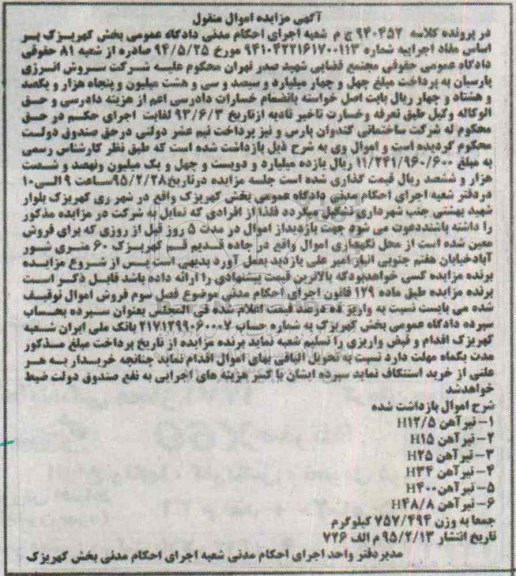 آگهی مزایده اموال منقول
در پرونده کلاسه ۹۴۰۴۵۲ ج م شعبه اجرای احکام مدنی دادگاه عمومی بخش کهریزک بر
اساس مفاد اجراییه شماره ۹۴۱۰۴۲۲۱۶۱۷۰۰۱۱۳ مورخ ۹۴/۵/۲۵ صادره از شعبه ۸۱ حقوقی
دادگاه عمومی حقوقی مجتمع قضایی شهید صدر تهران محکوم علیه شرکت سروش انرژی
پارسیان به پرداخت مبلغ چهل و چهار میلیارد و سیصد و سی و هشت میلیون و پنجاه هزار و یکصد
و هشتاد و چهار ریال بابت اصل خواسته بانضمام خسارات دادرسی اعم از هزینه دادرسی و حق
الوکاله وکیل طبق تعرفه و خسارت تاخیر تادیه ازتاریخ ۹۳/۶/۳ لغایت اجرای حکم در حق
محکوم له شرکت ساختمانی کندوان پارس و نیز پرداخت نیم عشر دولتی درحق صندوق دولت
محکوم گردیده است و اموال وی به شرح ذیل بازداشت شده است که طبق نظر کارشناس رسمی
به مبلغ ۱۱/۲۴۱/۹۶۰/۶۰۰ ریال یازده میلیارد و دویست و چهل و یک میلیون ونهصد و شصت
هزار و ششصد ریال قیمت گذاری شده است جلسه مزایده درتاریخ ۹۵/۲/۲۸ ساعت ۹ الی ۱۰
دردفتر شعبه اجرای احکام مدنی دادگاه عمومی بخش کهریزک واقع در شهر ری کهریزک بلوار
شهید بهشتی جنب شهرداری تشکیل میگردد فلذا از افرادی که تمایل به شرکت در مزایده مذکور
را داشته باشنددعوت می شود جهت بازدیداز اموال در مدت ۵ روز قبل از روزی که برای فروش
معین شده است از محل نگهداری اموال واقع در جاده قدیم قم کهریزک ۶۰ متری شور
آبادخیابان هفتم جنوبی انبار امیر علی بازدید بعمل آورد بدیهی است پس از شروع مزایده
برنده مزایده کسی خواهدبودکه بالاترین قیمت پیشنهادی را ارائه داده باشد قابل ذکر است
برنده مزایده طبق ماده ۱۲۹ قانون اجرای احکام مدنی موضوع فصل سوم فروش اموال توقیف
شده می بایست نسبت به واریز ده درصد قیمت اعلام شده فی المجلس بعنوان سپرده بحساب
سپرده دادگاه عمومی بخش کهریزک به شماره حساب ۲۱۷۱۲۹۹۰۶۰۰۰۷ بانک ملی ایران شعبه
کهریزک اقدام و فیش واریزی را تسلیم شعبه نماید برنده مزایده از تاریخ پرداخت مبلغ مذکور
مدت یکماه مهلت دارد نسبت به تحویل الباقی بهای اموال اقدام نماید چنانچه خریدار به هر
علتی از خرید استنکاف نماید سپرده ایشان با کسر هزینه های اجرایی به نفع صندوق دولت ضبط
خواهدشد
شرح اموال بازداشت شده
۱- تیرآهن H۱۲/۵
۲- تیرآهن H۱۵
۳- تیرآهن H۲۵
۴- تیرآهن H۳۴
۵- تیرآهن H۴۰۰
۶- تیرآهن H۴۸/۸
جمعا به وزن ۷۵۷/۴۹۴ کیلوگرم
تاریخ انتشار ۹۵/۲/۱۳ م الف ۷۲۶
مدیردفتر واحد اجرای احکام مدنی شعبه اجرای احکام مدنی بخش کهریزک